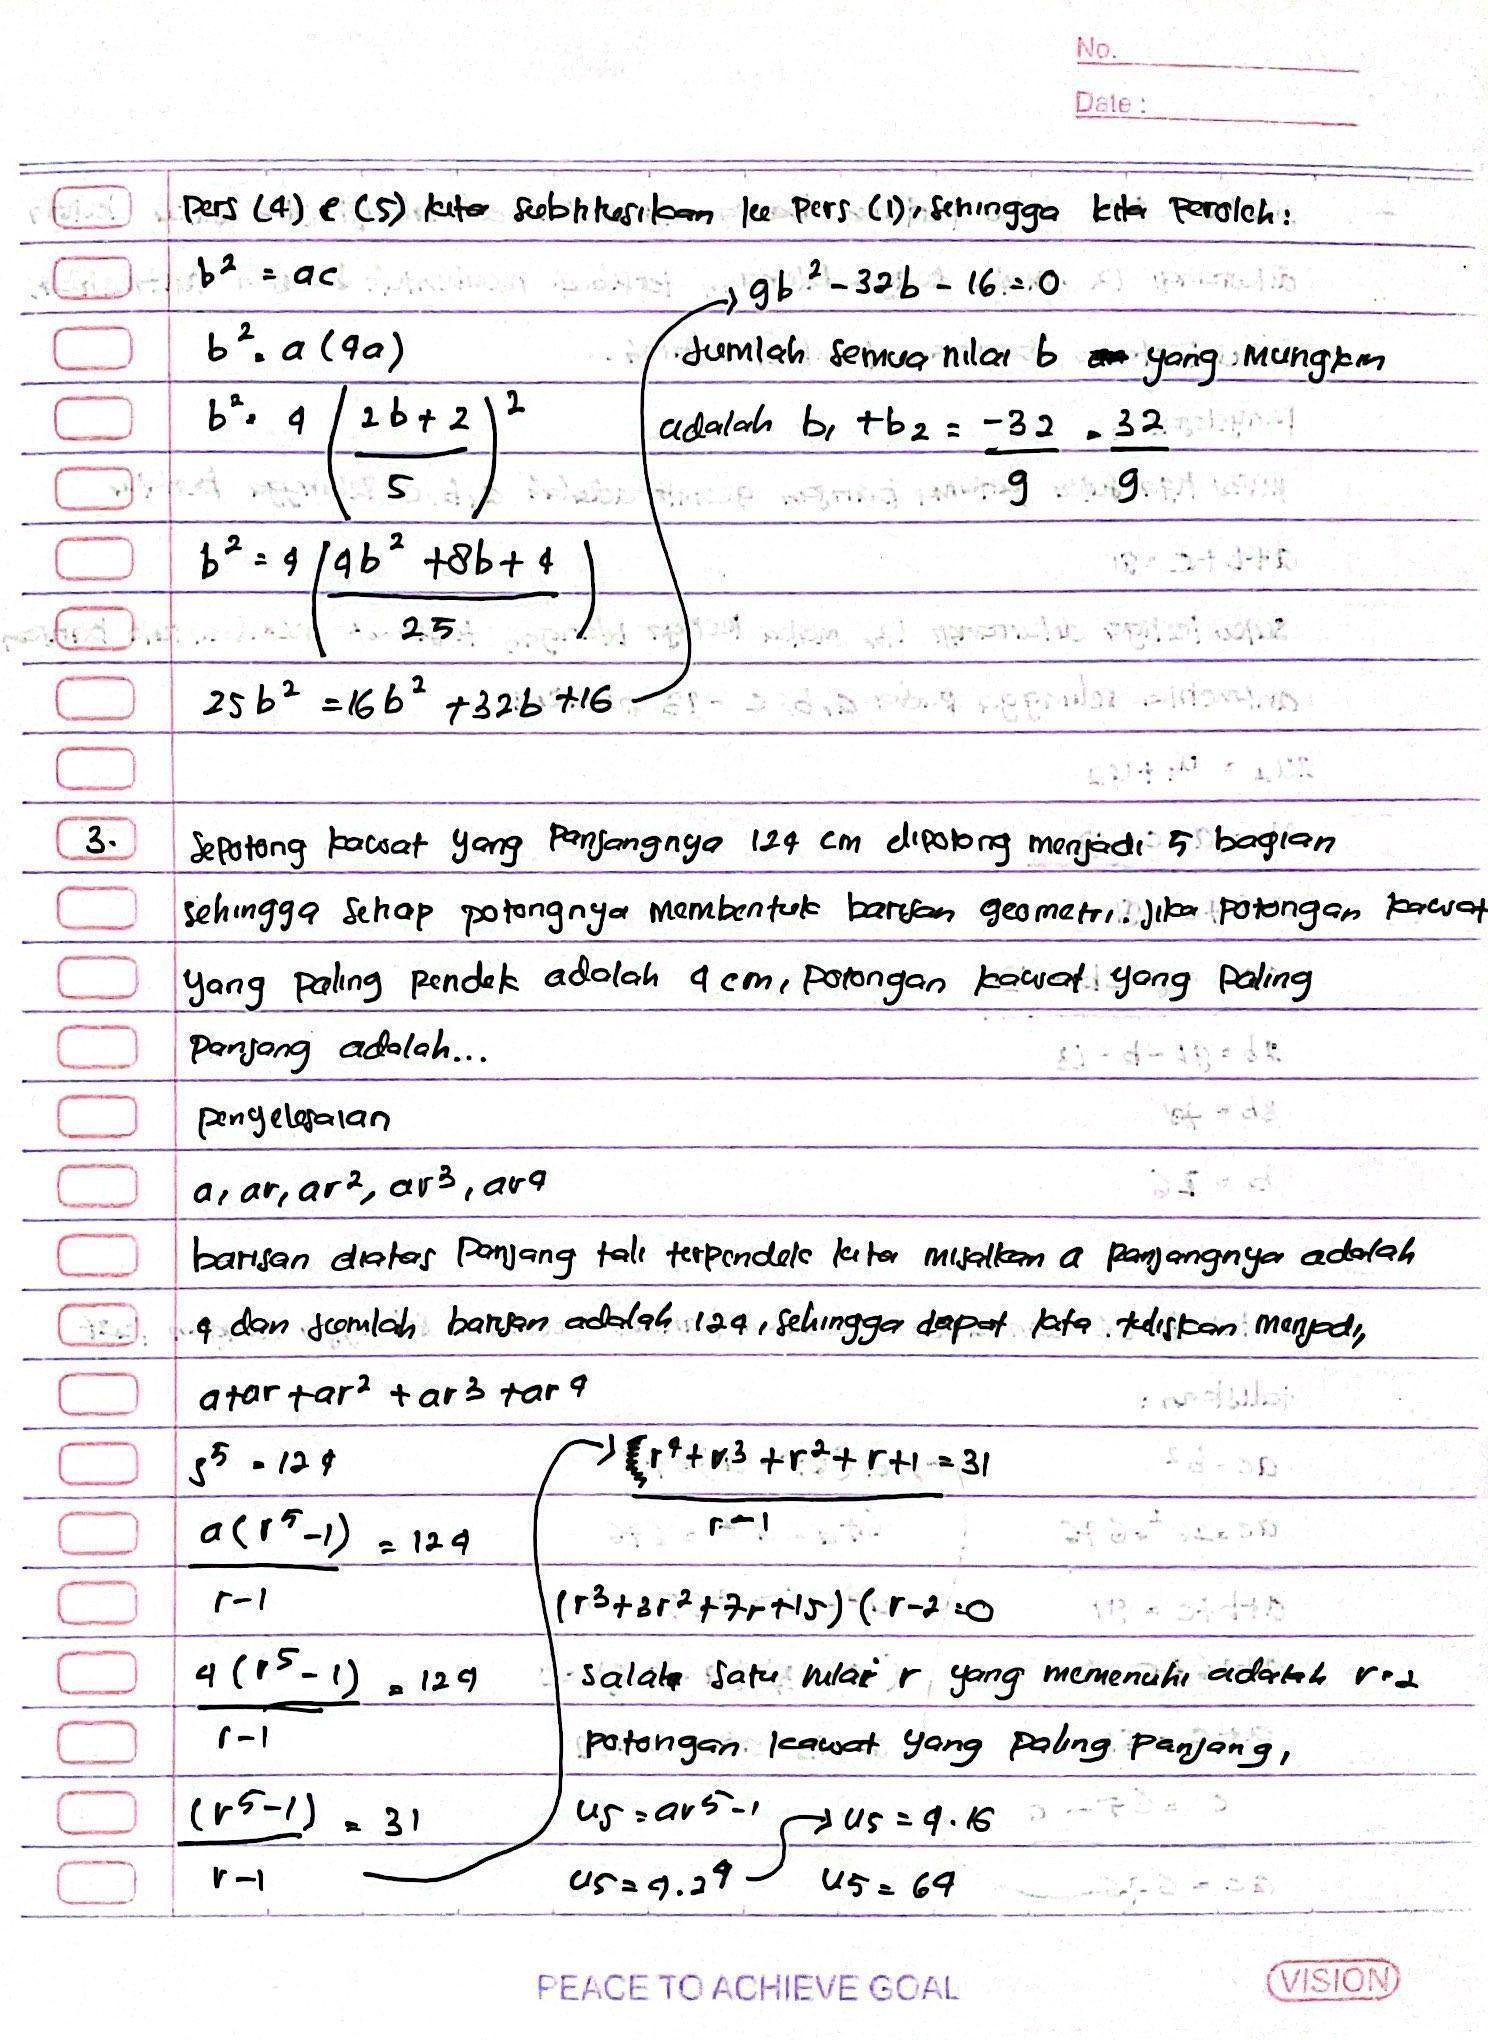 No.
Date :
Pers (4) & (5) kita subtitusikan ke Pers (1), sehingga kita Peroleh:
b² = ac
b² = a (4a)
b² = 4 ( 2b + 2 / 5 )²
b² = 4 ( 4b² + 8b + 4 / 25 )
25b² = 16b² + 32b + 16
→ 9b² - 32b - 16 = 0
Jumlah semua nilai b yang mungkin
adalah b₁ + b₂ = -32 / 9 = 32 / 9
3. Sepotong kawat yang Panjangnya 124 cm dipotong menjadi 5 bagian
sehingga setiap potongnya membentuk barisan geometri. Jika potongan kawat
yang paling pendek adalah 4 cm, potongan kawat yang paling
Panjang adalah...
penyelesaian
a, ar, ar², ar³, ar⁴
barisan diatas Panjang tali terpendek kita misalkan a Panjangnya adalah
4 dan jumlah barisan adalah 124, sehingga dapat kita tuliskan menjadi,
a + ar + ar² + ar³ + ar⁴
s⁵ = 124
a (r⁵ - 1) / r - 1 = 124
4 (r⁵ - 1) / r - 1 = 124
(r⁵ - 1) / r - 1 = 31
→ r⁴ + r³ + r² + r + 1 / r - 1 = 31
(r³ + 3r² + 7r + 15) ( r - 2 = 0
Salah satu nilai r yang memenuhi adalah r = 2
potongan kawat yang paling panjang,
U5 = ar⁵⁻¹
U5 = 4.2⁴
→ U5 = 4.16
U5 = 64
PEACE TO ACHIEVE GOAL
VISION